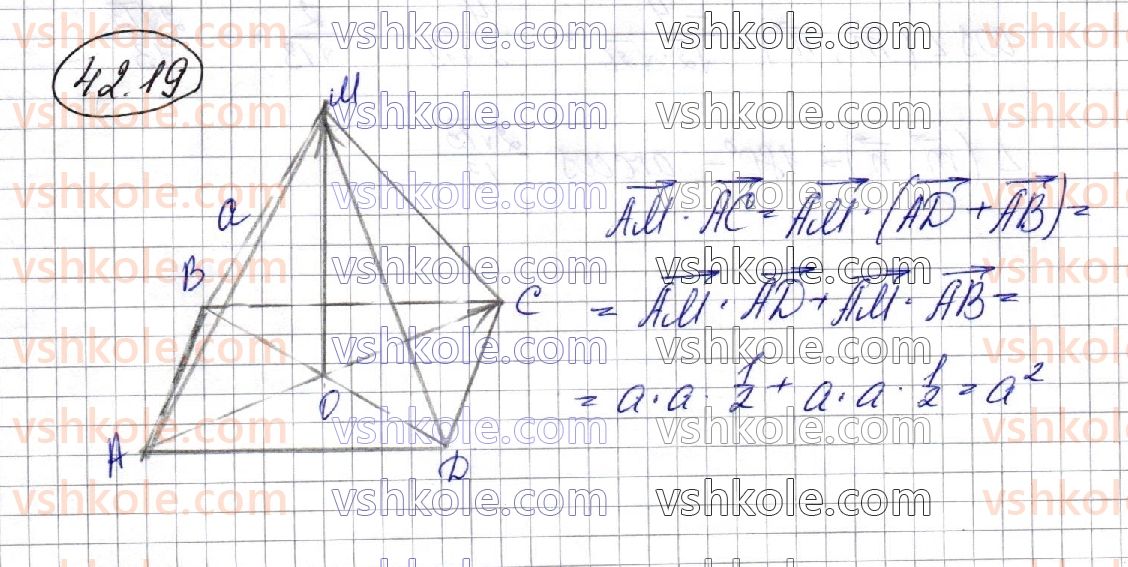 42.19
M
a
B
C
O
A
D
$\overrightarrow{AM} \cdot \overrightarrow{AC} = \overrightarrow{AM} \cdot (\overrightarrow{AD} + \overrightarrow{AB}) =$
$= \overrightarrow{AM} \cdot \overrightarrow{AD} + \overrightarrow{AM} \cdot \overrightarrow{AB} =$
$= a \cdot a \cdot \frac{1}{2} + a \cdot a \cdot \frac{1}{2} = a^2$
vshkole.com